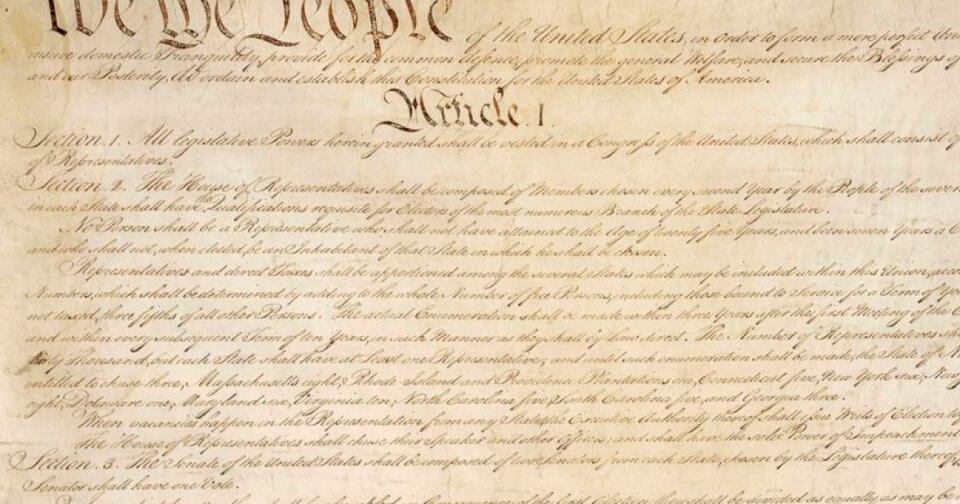 We the People of the United States, in order to form a more perfect
insure domestic Tranquility, provide for the common defence, promote the general Welfare, and secure the Blessings of
and our Posterity, do ordain and establish this Constitution for the United States of America.
Article. I.
Section. 1. All legislative Powers herein granted shall be vested in a Congress of the United States, which shall consist of
of Representatives.
Section. 2. The House of Representatives shall be composed of Members chosen every second Year by the People of the
in each State shall have the Qualifications requisite for Electors of the most numerous Branch of the State Legislature.
No Person shall be a Representative who shall not have attained to the Age of twenty five Years, and been seven Years a
and who shall not, when elected, be an Inhabitant of that State in which he shall be chosen.
Representatives and direct Taxes shall be apportioned among the several States which may be included within this Union,
Numbers, which shall be determined by adding to the whole Number of free Persons, including those bound to Service for a Term of
not taxed, three fifths of all other Persons. The actual Enumeration shall be made within three Years after the first Meeting of the
and within every subsequent Term of ten Years, in such Manner as they shall by Law direct. The Number of Representatives
thirty Thousand, but each State shall have at Least one Representative; and until such enumeration shall be made, the State of
entitled to chuse three, Massachusetts eight, Rhode-Island and Providence Plantations one, Connecticut five, New-York six,
eight, Delaware one, Maryland six, Virginia ten, North Carolina five, South Carolina five, and Georgia three.
When vacancies happen in the Representation from any State, the Executive Authority thereof shall issue Writs of Election to
The House of Representatives shall chuse their Speaker and other Officers; and shall have the sole Power of Impeachment
Section. 3. The Senate of the United States shall be composed of two Senators from each State, chosen by the Legislature thereof,
Senator shall have one Vote.
be divided as equally as may be